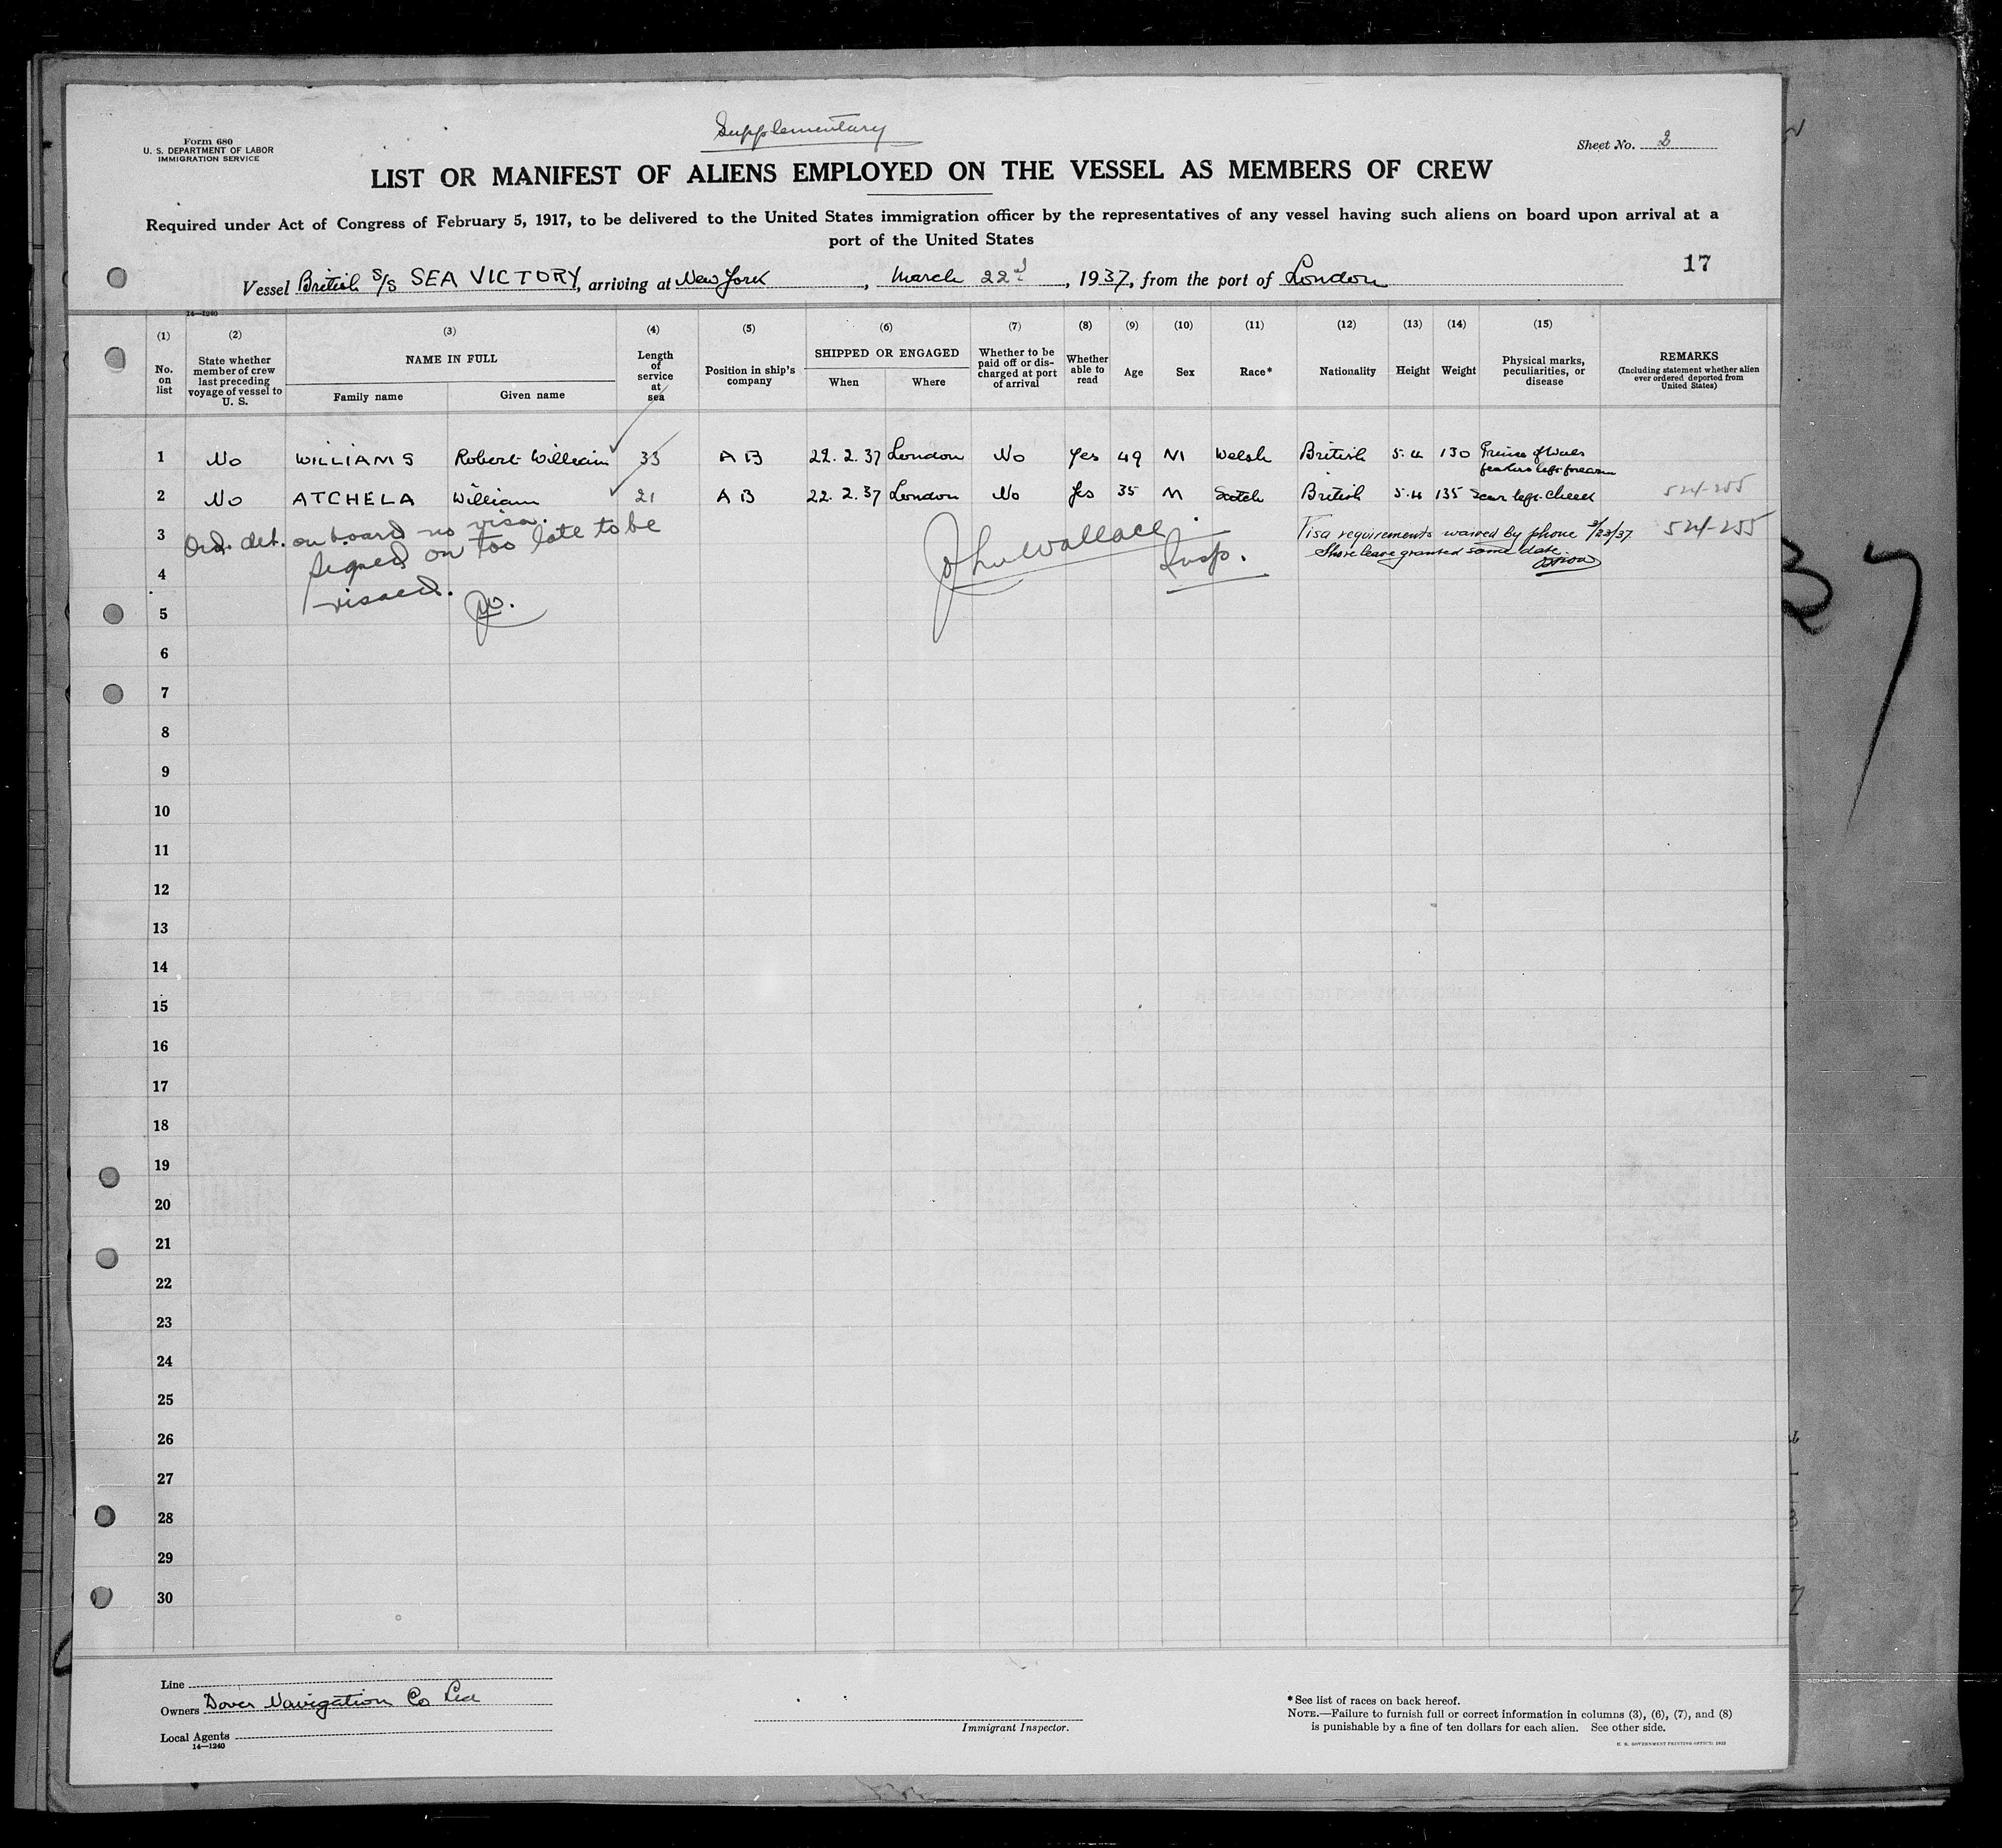 Supplementary
Form 680
U. S. DEPARTMENT OF LABOR
IMMIGRATION SERVICE
Sheet No. 2
LIST OR MANIFEST OF ALIENS EMPLOYED ON THE VESSEL AS MEMBERS OF CREW
Required under Act of Congress of February 5, 1917, to be delivered to the United States immigration officer by the representatives of any vessel having such aliens on board upon arrival at a
port of the United States
17
Vessel British S/S SEA VICTORY, arriving at New York, March 22d, 1937, from the port of London
14—1240
(1) No. on list
(2) State whether member of crew last preceding voyage of vessel to U. S.
(3) NAME IN FULL
Family name Given name
(4) Length of service at sea
(5) Position in ship's company
(6) SHIPPED OR ENGAGED
When Where
(7) Whether to be paid off or discharged at port of arrival
(8) Whether able to read
(9) Age
(10) Sex
(11) Race*
(12) Nationality
(13) Height
(14) Weight
(15) Physical marks, peculiarities, or disease
REMARKS
(Including statement whether alien ever ordered deported from United States)
1 No WILLIAMS Robert William 33 A B 22. 2. 37 London No Yes 49 M Welsh British 5.4 130 Prince of Wales
feathers left forearm
2 No ATCHELA William 21 A B 22. 2. 37 London No Yes 35 M Scotch British 5.4 135 Scar left cheek 521-255
3 Ord. det. on board no visa. Visa requirements waived by phone 3/23/37 521-255
signed on too late to be John Wallace Shore leave granted same date
4 visaed. Insp.
JW.
5
6
7
8
9
10
11
12
13
14
15
16
17
18
19
20
21
22
23
24
25
26
27
28
29
30
37
Line
Owners Dover Navigation Co Ltd
Local Agents
14—1240
Immigrant Inspector.
*See list of races on back hereof.
NOTE.—Failure to furnish full or correct information in columns (3), (6), (7), and (8)
is punishable by a fine of ten dollars for each alien. See other side.